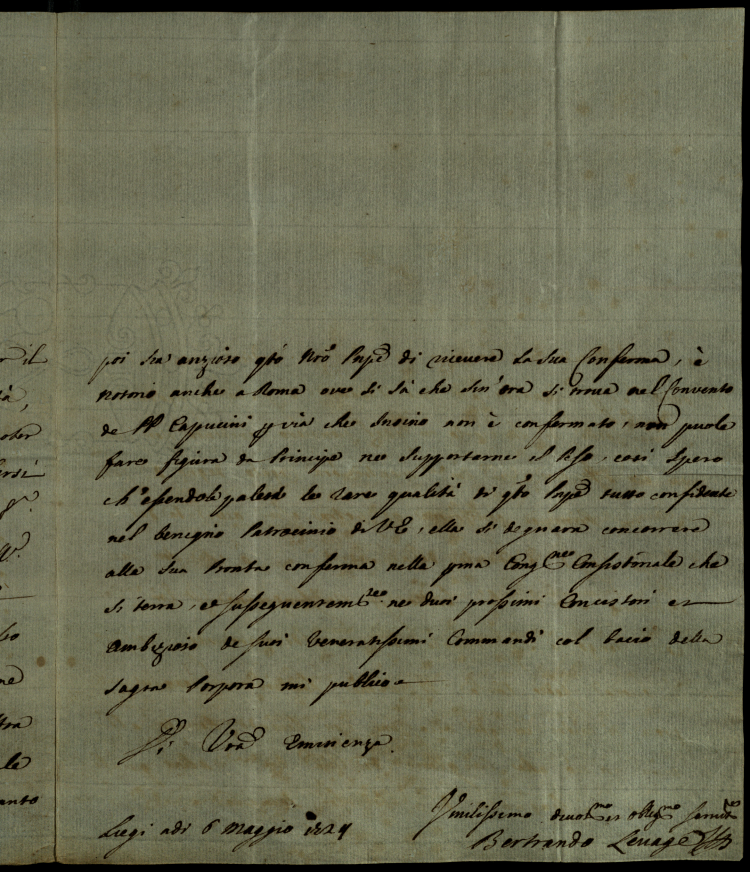 r il
tà,
poi sia anzioso qto Nro Pnpe di ricevere la sua Conferma, è
notorio anche a Roma ove si sà che sin'ora si trova nel Convento
de PP Capucini p via che insino non è confermato, non puole
fare figura da Principe ne supportarne il Peso, così spero
ch'essendole palese le rare qualità di qto Pnpe tutto confidente
nel benigno Patrocinio di VE, ella si degnara concorrere
alla sua Pronta conferma nella pma Congne Consistoriale che
si terra, et sussequentemte ne duoi prossimi Concistori et
Ambizioso de suoi Veneratissimi Commandi col bacio della
Sagra Porpora mi publico
me
stra
le
anto
Di Vra Eminenza.
Liegi adi 6 Maggio
Umilissimo devotmo et obligmo servitre
Bertrando